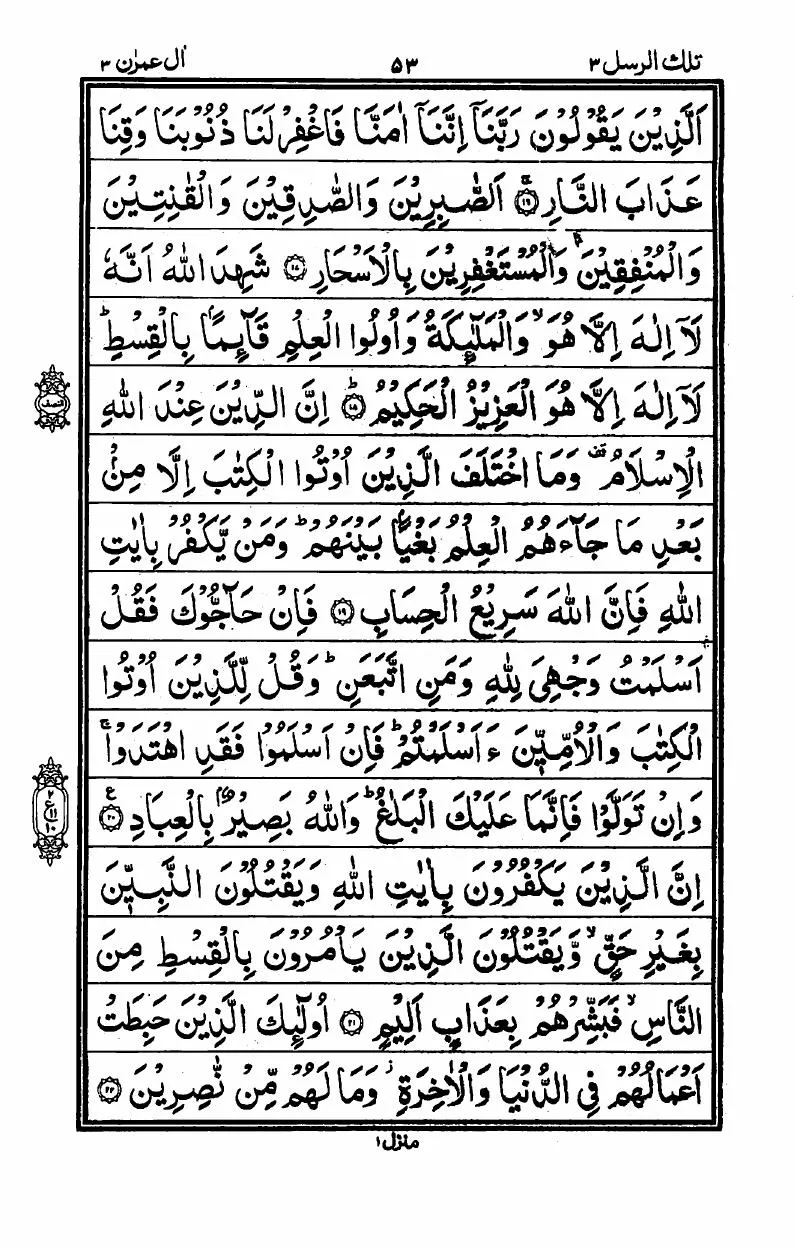 تلك الرسل ٣ ٥٣ اٰل عمرٰن ٣
اَلَّذِيْنَ يَقُوْلُوْنَ رَبَّنَاۤ اِنَّنَاۤ اٰمَنَّا فَاغْفِرْ لَنَا ذُنُوْبَنَا وَقِنَا
عَذَابَ النَّارِۚ ۝١٦ اَلصّٰبِرِيْنَ وَالصّٰدِقِيْنَ وَالْقٰنِتِيْنَ
وَالْمُنْفِقِيْنَ وَالْمُسْتَغْفِرِيْنَ بِالْاَسْحَارِ ۝١٧ شَهِدَ اللّٰهُ اَنَّهٗ
لَاۤ اِلٰهَ اِلَّا هُوَۙ وَالْمَلٰٓئِكَةُ وَاُولُوا الْعِلْمِ قَآئِمًۢا بِالْقِسْطِؕ
لَاۤ اِلٰهَ اِلَّا هُوَ الْعَزِيْزُ الْحَكِيْمُؕ ۝١٨ اِنَّ الدِّيْنَ عِنْدَ اللّٰهِ
الْاِسْلَامُ وَمَا اخْتَلَفَ الَّذِيْنَ اُوْتُوا الْكِتٰبَ اِلَّا مِنْۢ
بَعْدِ مَا جَآءَهُمُ الْعِلْمُ بَغْيًۢا بَيْنَهُمْؕ وَمَنْ يَّكْفُرْ بِاٰيٰتِ
اللّٰهِ فَاِنَّ اللّٰهَ سَرِيْعُ الْحِسَابِ ۝١٩ فَاِنْ حَآجُّوْكَ فَقُلْ
اَسْلَمْتُ وَجْهِيَ لِلّٰهِ وَمَنِ اتَّبَعَنِؕ وَقُلْ لِّلَّذِيْنَ اُوْتُوا
الْكِتٰبَ وَالْاُمِّيّٖنَ ءَاَسْلَمْتُمْؕ فَاِنْ اَسْلَمُوْا فَقَدِ اهْتَدَوْاۚ
وَاِنْ تَوَلَّوْا فَاِنَّمَا عَلَيْكَ الْبَلٰغُؕ وَاللّٰهُ بَصِيْرٌۢ بِالْعِبَادِ ۝٢٠ ع
اِنَّ الَّذِيْنَ يَكْفُرُوْنَ بِاٰيٰتِ اللّٰهِ وَيَقْتُلُوْنَ النَّبِيّٖنَ
بِغَيْرِ حَقٍّۙ وَّيَقْتُلُوْنَ الَّذِيْنَ يَاْمُرُوْنَ بِالْقِسْطِ مِنَ
النَّاسِۙ فَبَشِّرْهُمْ بِعَذَابٍ اَلِيْمٍ ۝٢١ اُولٰٓئِكَ الَّذِيْنَ حَبِطَتْ
اَعْمَالُهُمْ فِي الدُّنْيَا وَالْاٰخِرَةِؗ وَمَا لَهُمْ مِّنْ نّٰصِرِيْنَ ۝٢٢
منزل ١
النصف
٢
ع ١١
١٠